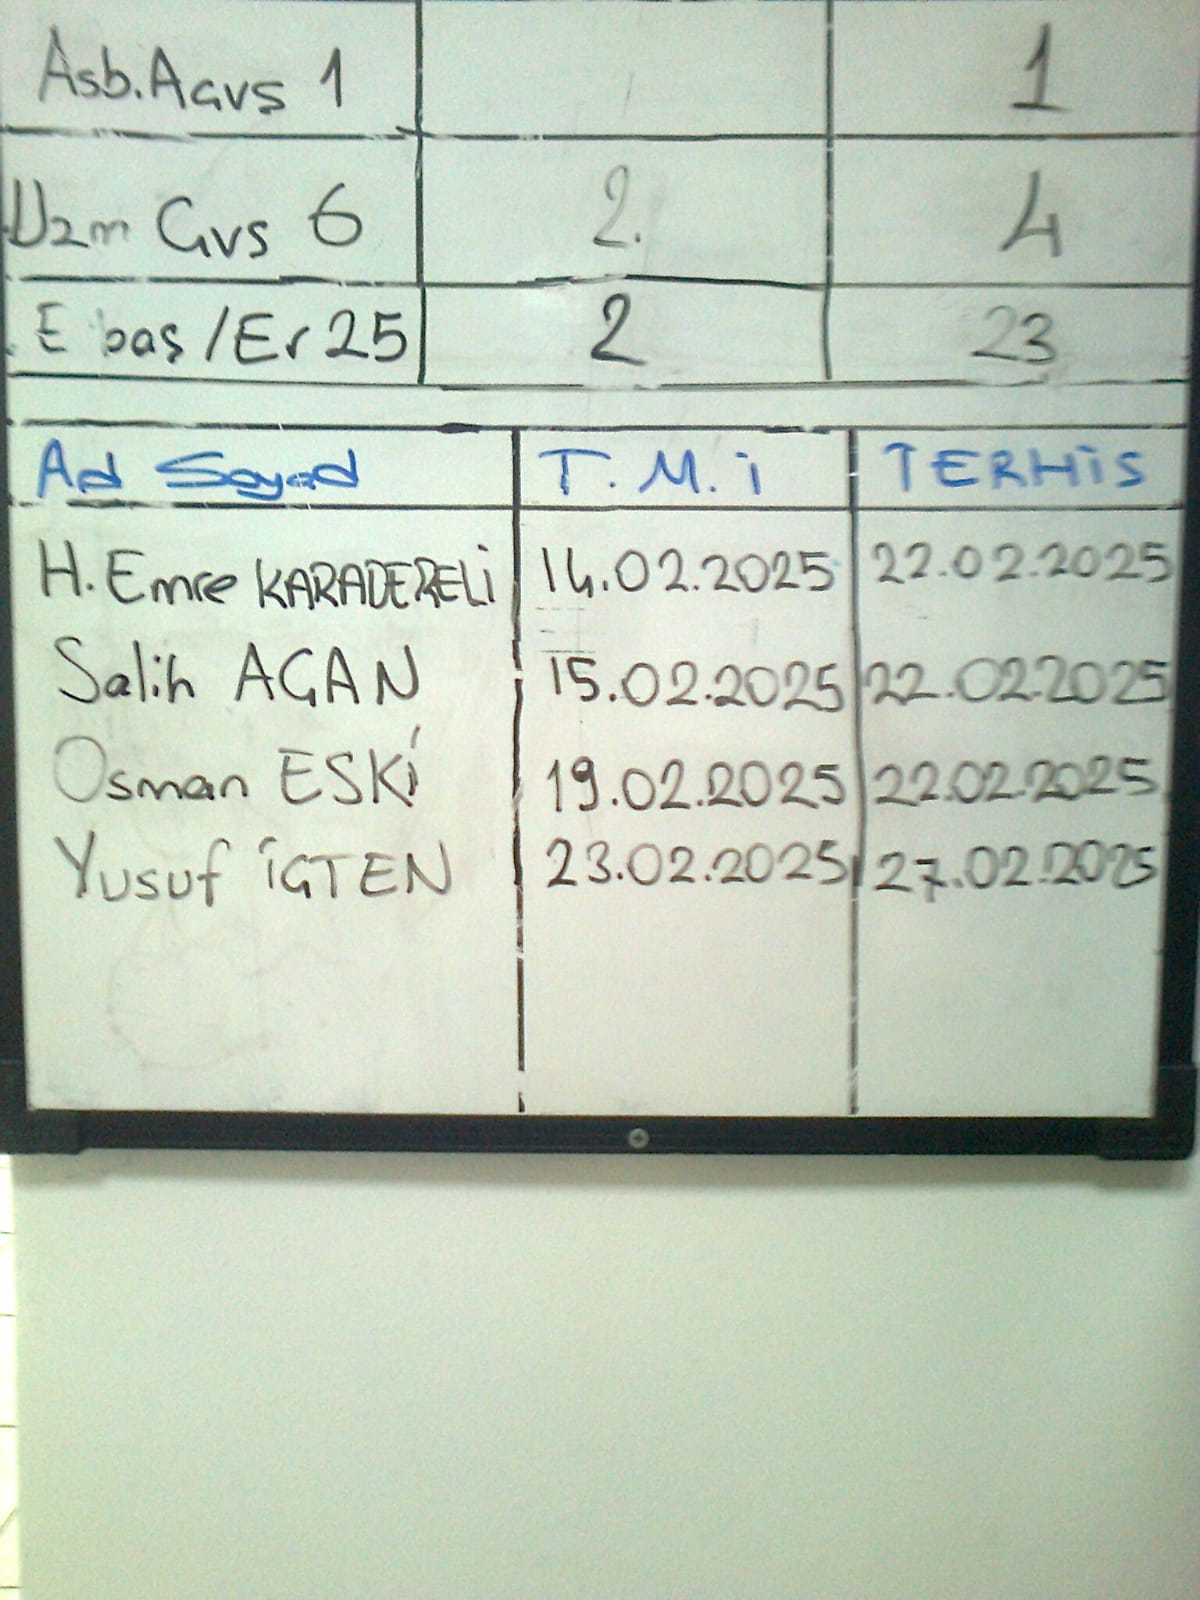 Asb.Aavs 1 1
Uzm Çvş 6 2. 4
E baş /Er 25 2 23
Ad Soyad T.M.i TERHİS
H. Emre KARADERELİ 14.02.2025 22.02.2025
Salih AGAN 15.02.2025 22.02.2025
Osman ESKİ 19.02.2025 22.02.2025
Yusuf İGTEN 23.02.2025 27.02.2025